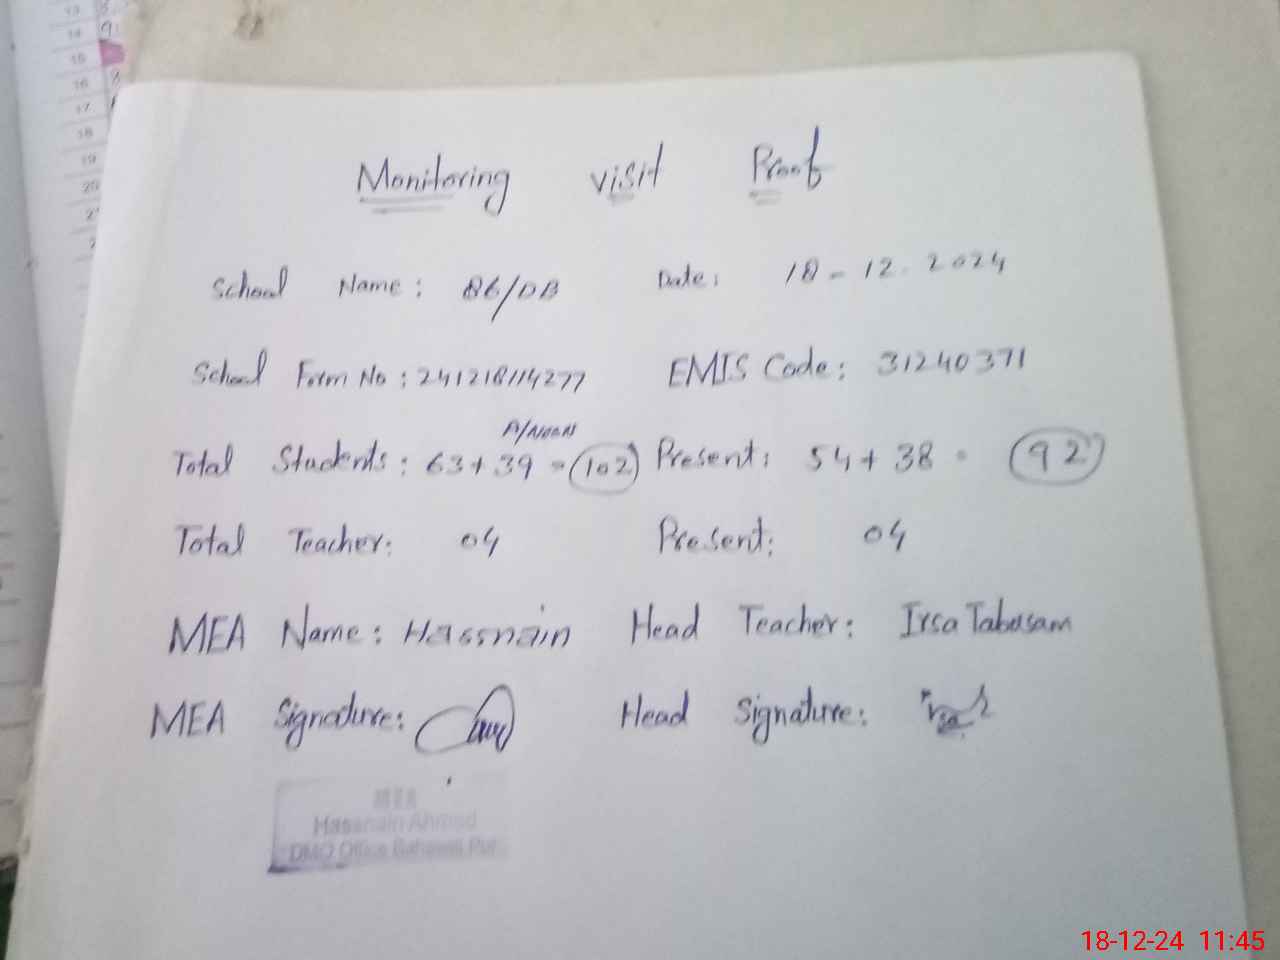 13
14
15
16
17
18
19
20
Monitoring visit Proof
School Name: 86/DB Date: 18-12-2024
School Form No: 241218114277 EMIS Code: 31240371
A/Noon
Total Students: 63+39=102 Present: 54+38= 92
Total Teacher: 04 Present: 04
MEA Name: Hassnain Head Teacher: Irsa Tabasam
MEA Signature: Head Signature:
MEA
Hasanain Ahmad
DMO Office Bahawal Pur
18-12-24 11:45